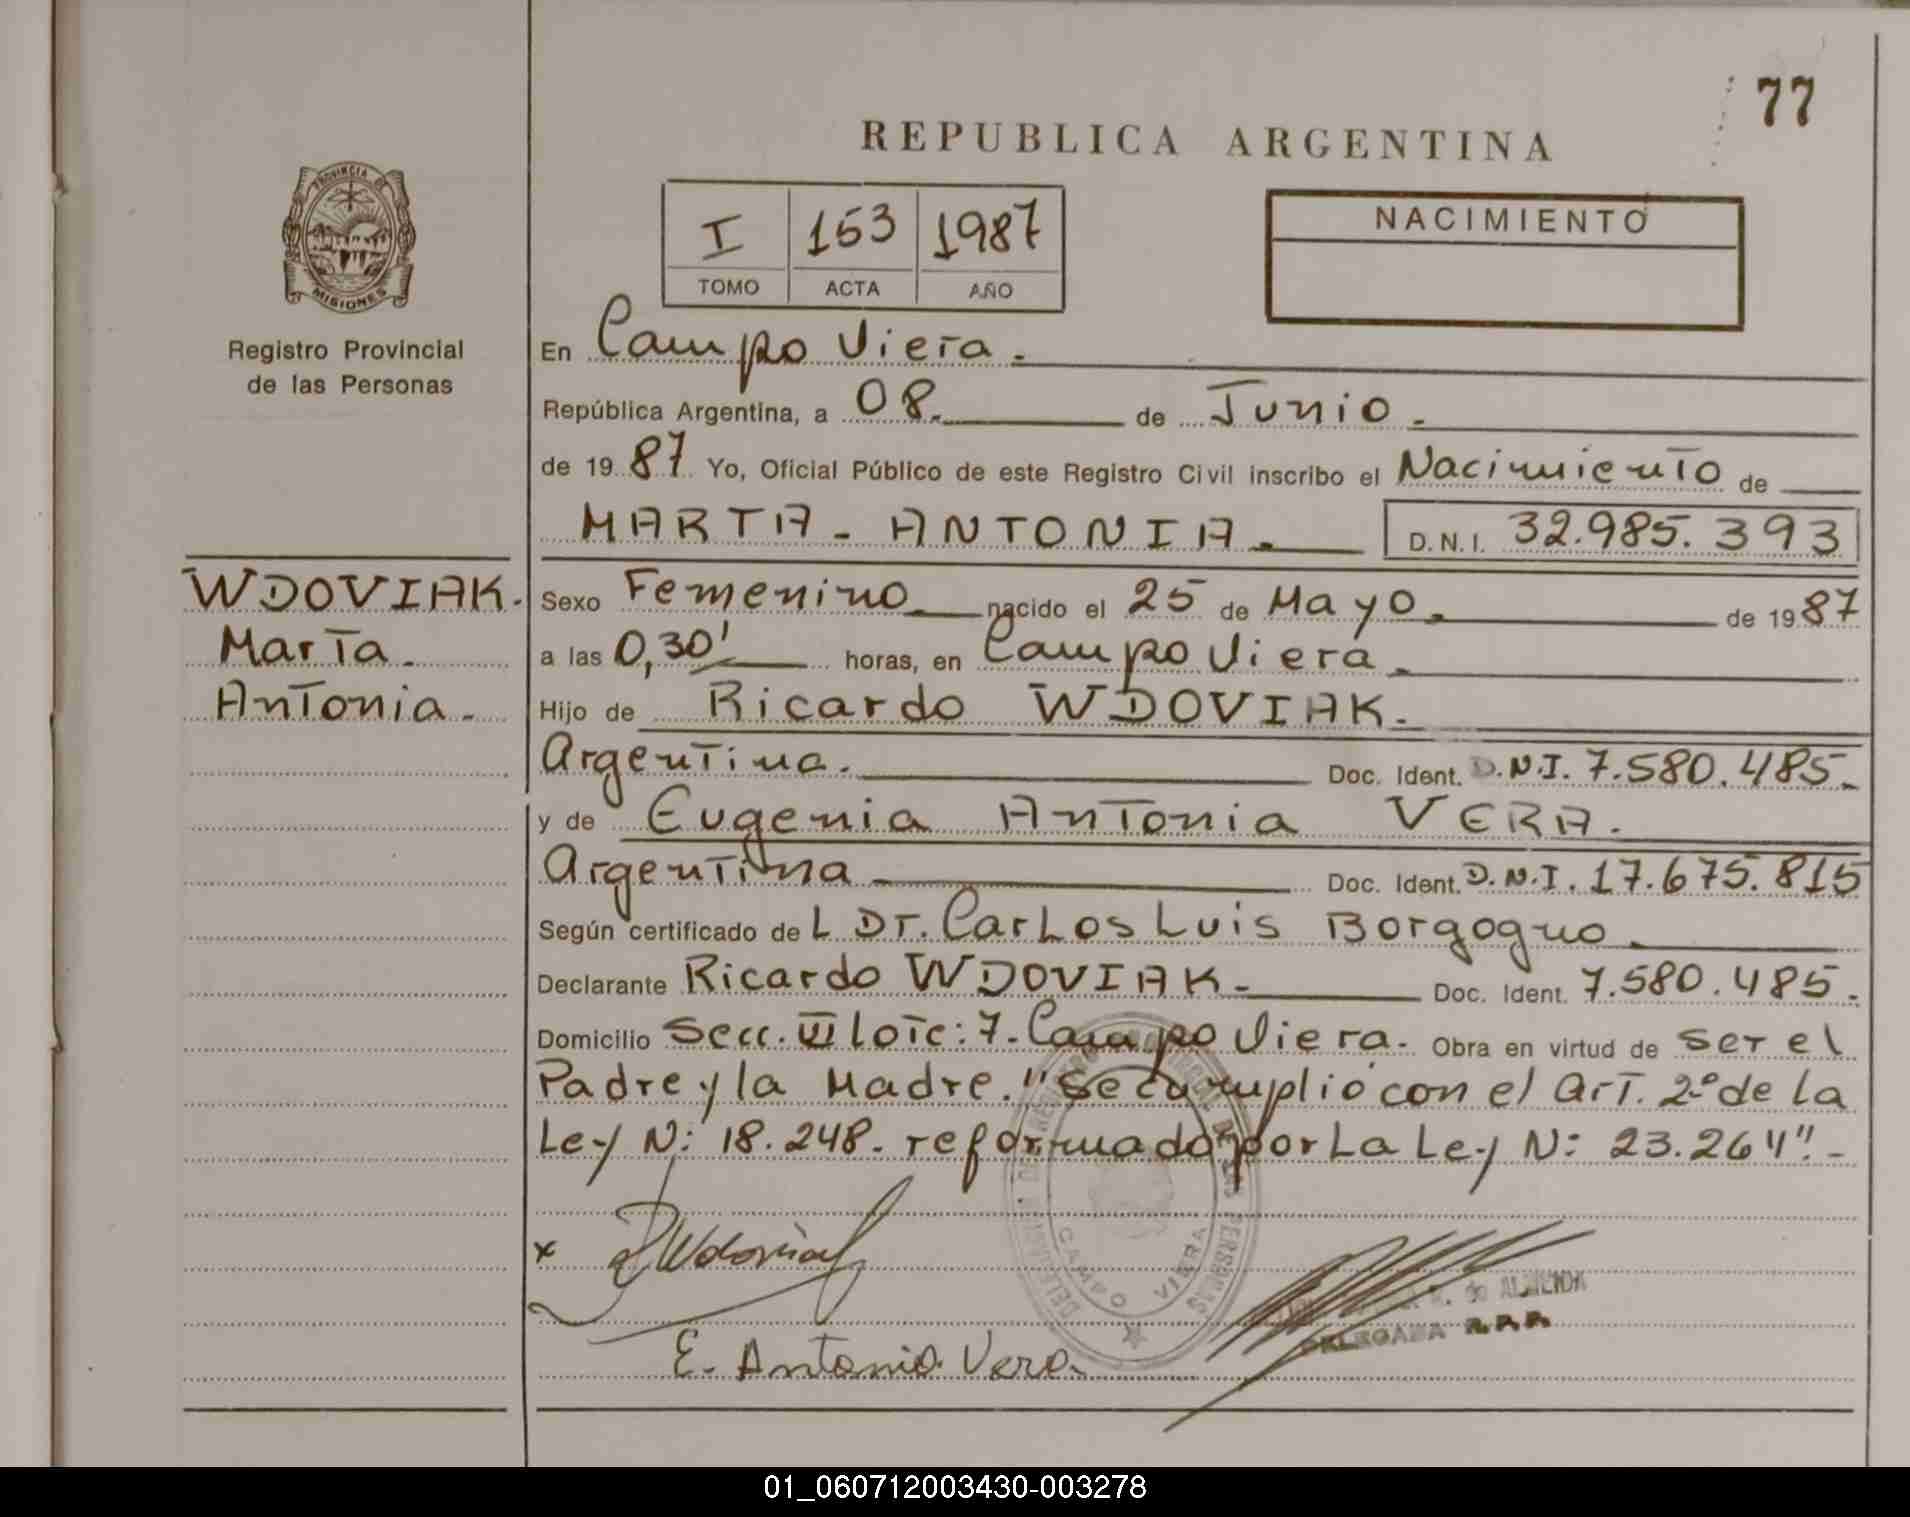 77
REPUBLICA ARGENTINA
PROVINCIA DE
MISIONES
Registro Provincial
de las Personas
I 153 1987
TOMO ACTA AÑO
NACIMIENTO
En Campo Viera.
República Argentina, a 08. de Junio.
de 19 87 Yo, Oficial Público de este Registro Civil inscribo el Nacimiento de
MARTA - ANTONIA. D.N.I. 32.985.393
WDOVIAK.
Marta.
Antonia.
Sexo Femenino nacido el 25 de Mayo. de 19 87
a las 0,30' horas, en Campo Viera.
Hijo de Ricardo WDOVIAK.
Argentina. Doc. Ident. D.N.I. 7.580.485.
y de Eugenia Antonia VERA.
Argentina Doc. Ident. D.N.I. 17.675.815
Según certificado de L Dr. Carlos Luis Borgogno
Declarante Ricardo WDOVIAK. Doc. Ident. 7.580.485.
Domicilio Secc. VI lote: 7. Campo Viera. Obra en virtud de ser el
Padre y la Madre. "Se cumplió con el Art. 2º de la
Ley N: 18.248. reformado por La Ley N: 23.264". -
x RWdoviak
E. Antonia Vera
CAMPO VIERA
DE LAS PERSONAS
de ALMEIDA
DELEGADA R.P.P.
01_060712003430-003278